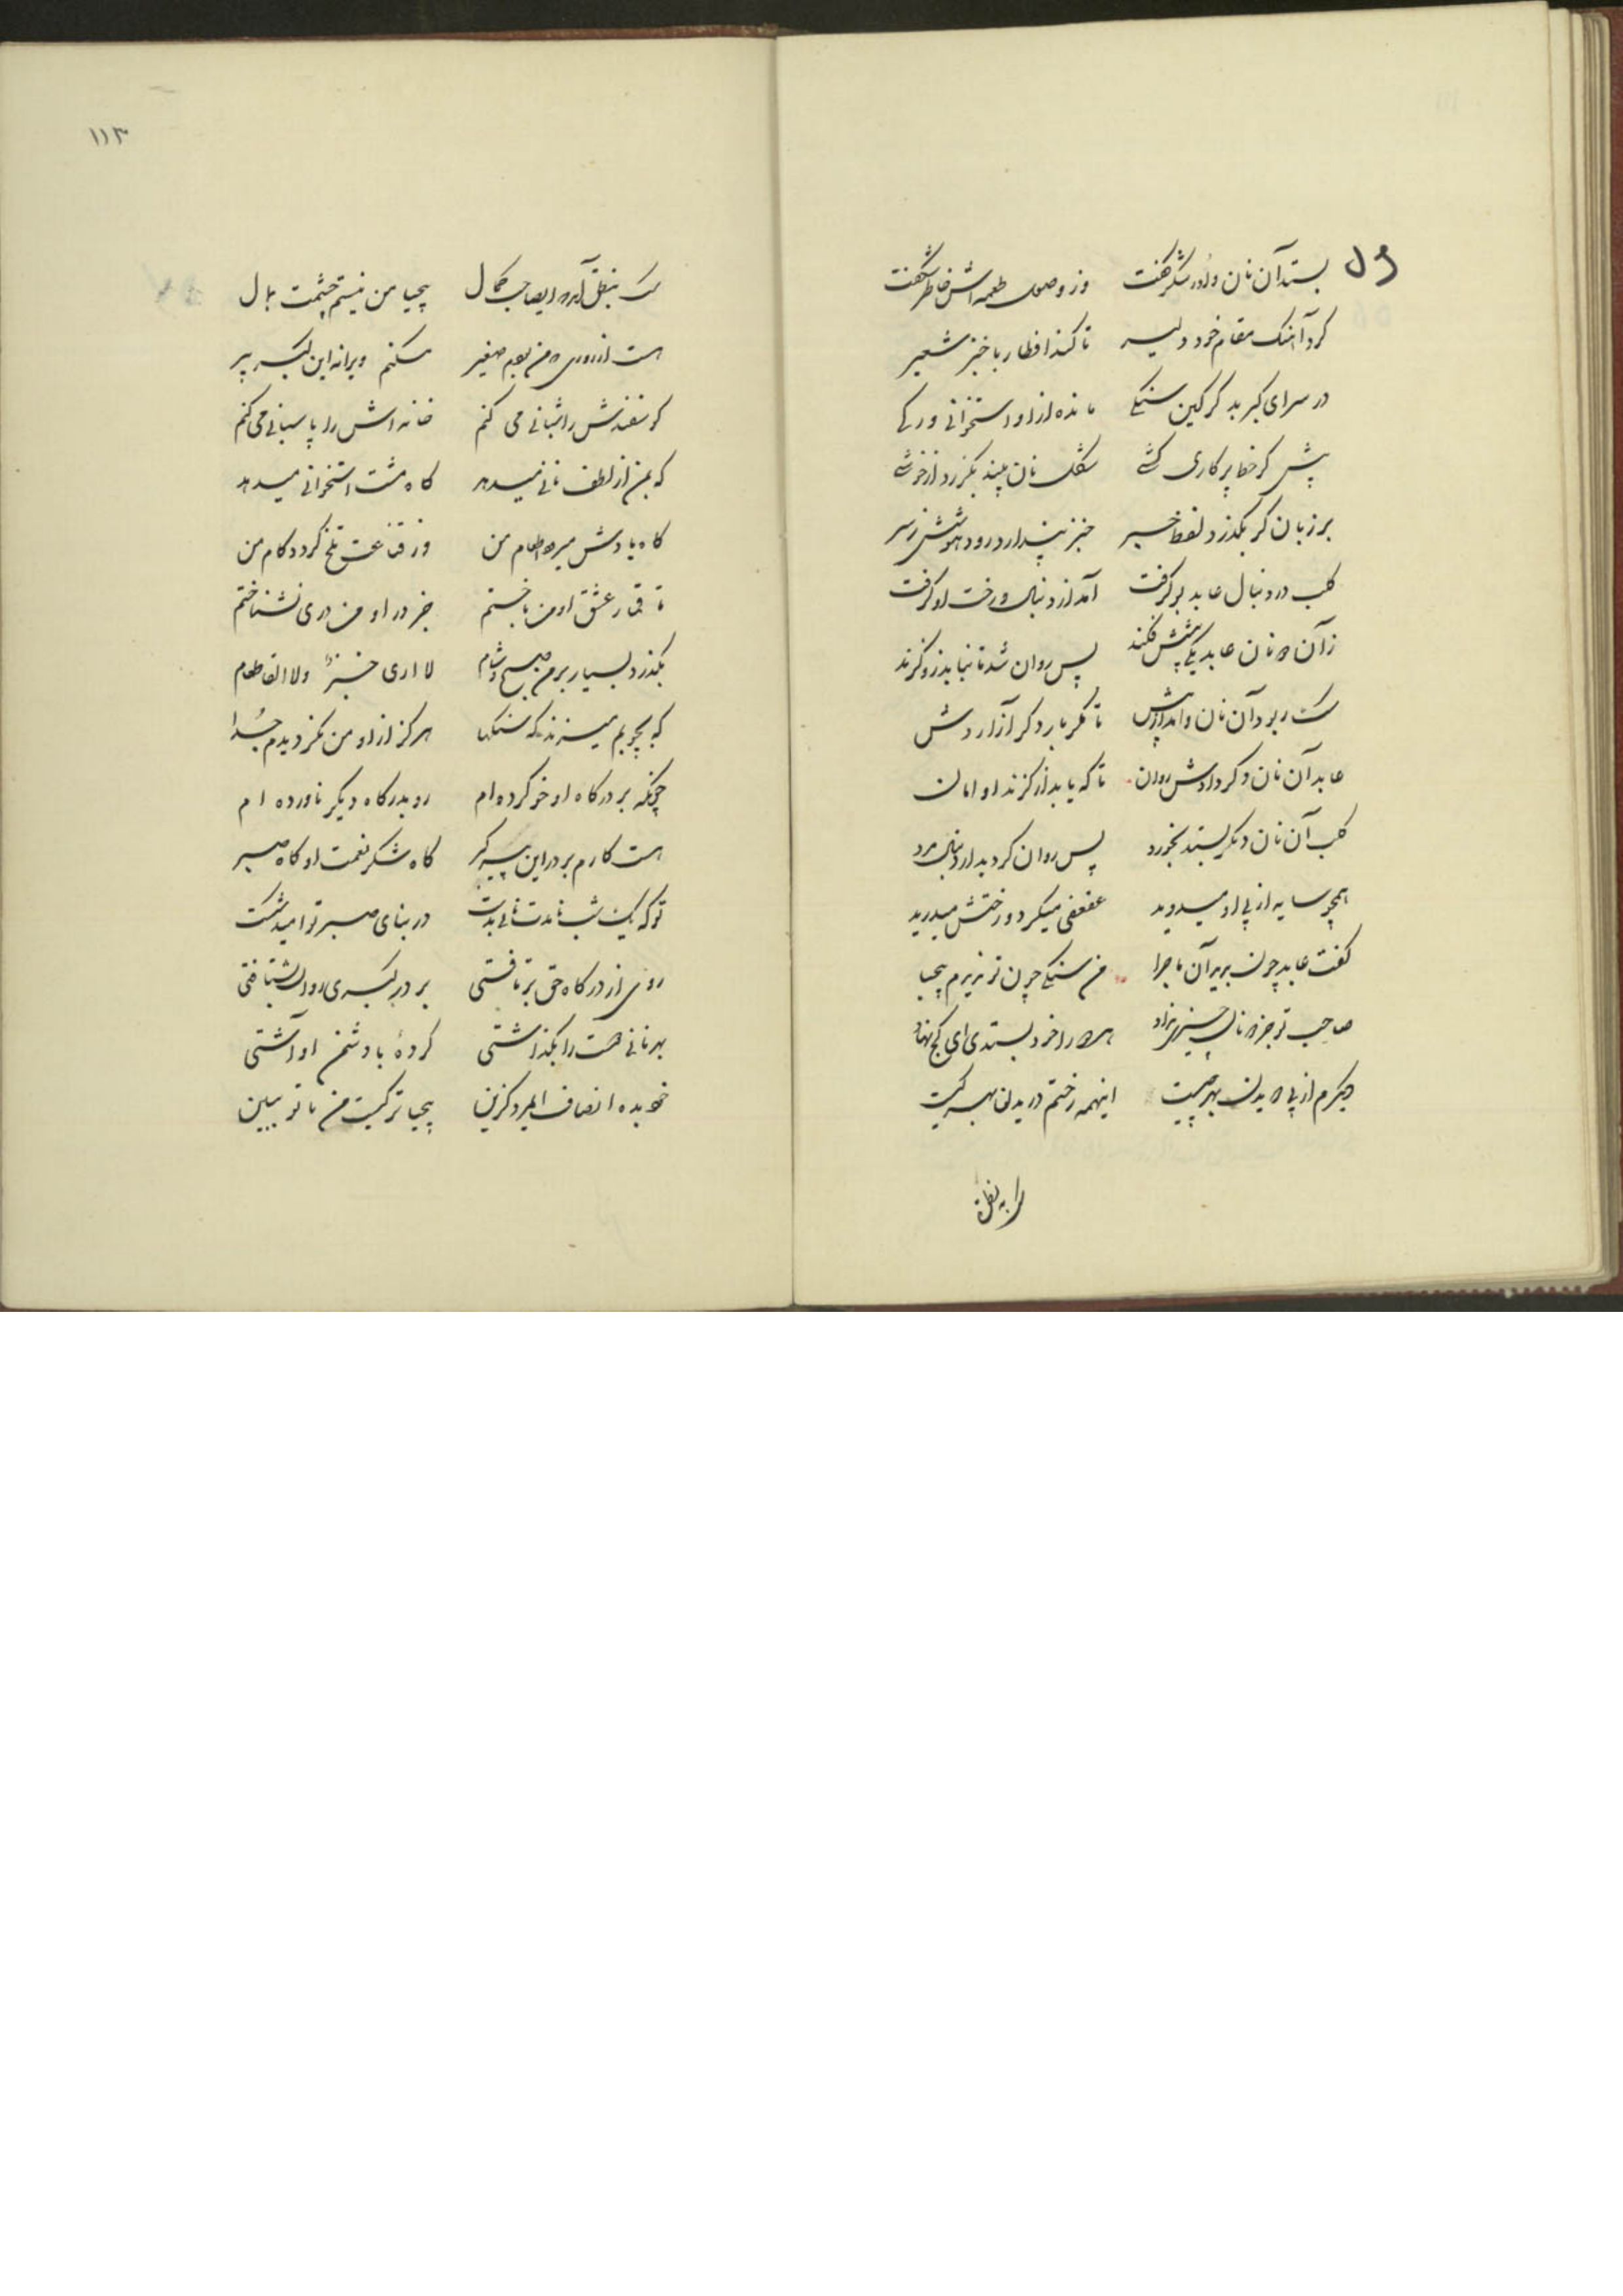 بستد آن نان و اورا شکر گفت وز وصول طعمه اش خاطر شکفت
کرد آهنک مقام خود دلیر تا کند افطار با خبز شعیر
در سرای کبر بد کرکین سکی مانده از او استخوانی و رکی
پیش کر خط پرکاری کشی شکل نان بیند بمیرد از خوشی
بر زبان کر بکذرد لفظ خبیر خبز پندارد رود هوشش ز سر
کلب در دنبال عابد بر کرفت آمد از دنبال و رخت او کرفت
زآن دو نان عابد یکی پیشش فکند پس روان شد تا نیابد زو کزند
سک ربود آن نان و آمد از پیش تا مکر بار دکر آزاردش
عابد آن نان دکر دادش روان تا که یابد از کزند او امان
کلب آن نان دیکر بستد بخورد پس روان کردید از دنبال مرد
همچو سایه از پی او میدوید عفعفی میکرد و رختش میدرید
کفت عابد چون بدید آن ماجرا من سکی چون تو ندیدم بیحیا
صاحبت تو جز دو نان چیزی نداد هر دو را خود بستدی ای کج نهاد
دیکرم از پی دویدن بهر چیست اینهمه رختم دریدن بهر کیست
سک بنطق
۱۱۳
سک بنطق آمد که ایصاحب کمال بیحیا من نیستم چشمت بمال
هست از روزی که من بودم صغیر مسکنم ویرانه این کبر پیر
کوسفندش را شبانی می کنم خانه اش را پاسبانی می کنم
که بمن از لطف نانی میدهد کاه مشت استخوانی میدهد
کاه یادش میرود اطعام من وز قناعت تلخ کردد کام من
تا قمار عشق او من باختم جز در او من دری نشناختم
بکذرد بسیار بر من صبح و شام لا اری خبزاً ولا القا طعام
که بچوبم میزند که سنکها هرکز از او من نکردیدم جدا
چونکه بر درکاه او خو کرده ام رو بدرکاه دیکر ناورده ام
هست کارم بر در این پیر کبر کاه شکر نعمت او کاه صبر
تو که یک شب نامدت نانی بدست در بنای صبر تو آمد شکست
روی از درکاه حق برتافتی بر در کبری روان بشتافتی
بهر نانی دوست را بکذاشتی کردهٔ با دشمن او آشتی
خود بده انصاف ایمرد کزین بیحیا تر کیست من یا تو ببین